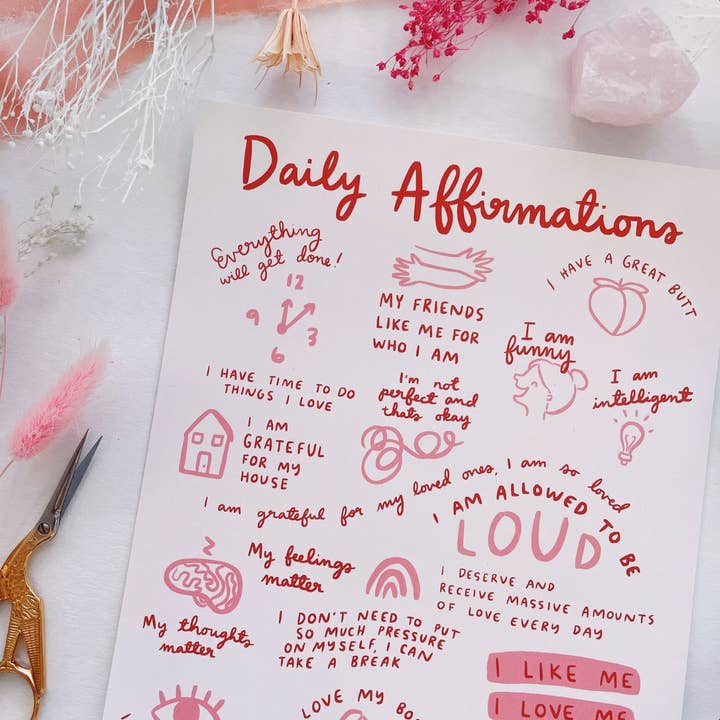 Daily Affirmations
Everything
will get done!
12
9
3
6
MY FRIENDS
LIKE ME FOR
WHO I AM
I HAVE A GREAT BUTT
I am
funny
I am
intelligent
I HAVE TIME TO DO
THINGS I LOVE
I'm not
perfect and
thats okay
I AM
GRATEFUL
FOR MY
HOUSE
I am grateful for my loved ones, I am so loved
I AM ALLOWED TO BE
LOUD
My feelings
matter
I DESERVE AND
RECEIVE MASSIVE AMOUNTS
OF LOVE EVERY DAY
My thoughts
matter
I DON'T NEED TO PUT
SO MUCH PRESSURE
ON MYSELF, I CAN
TAKE A BREAK
I LIKE ME
I LOVE ME
LOVE MY